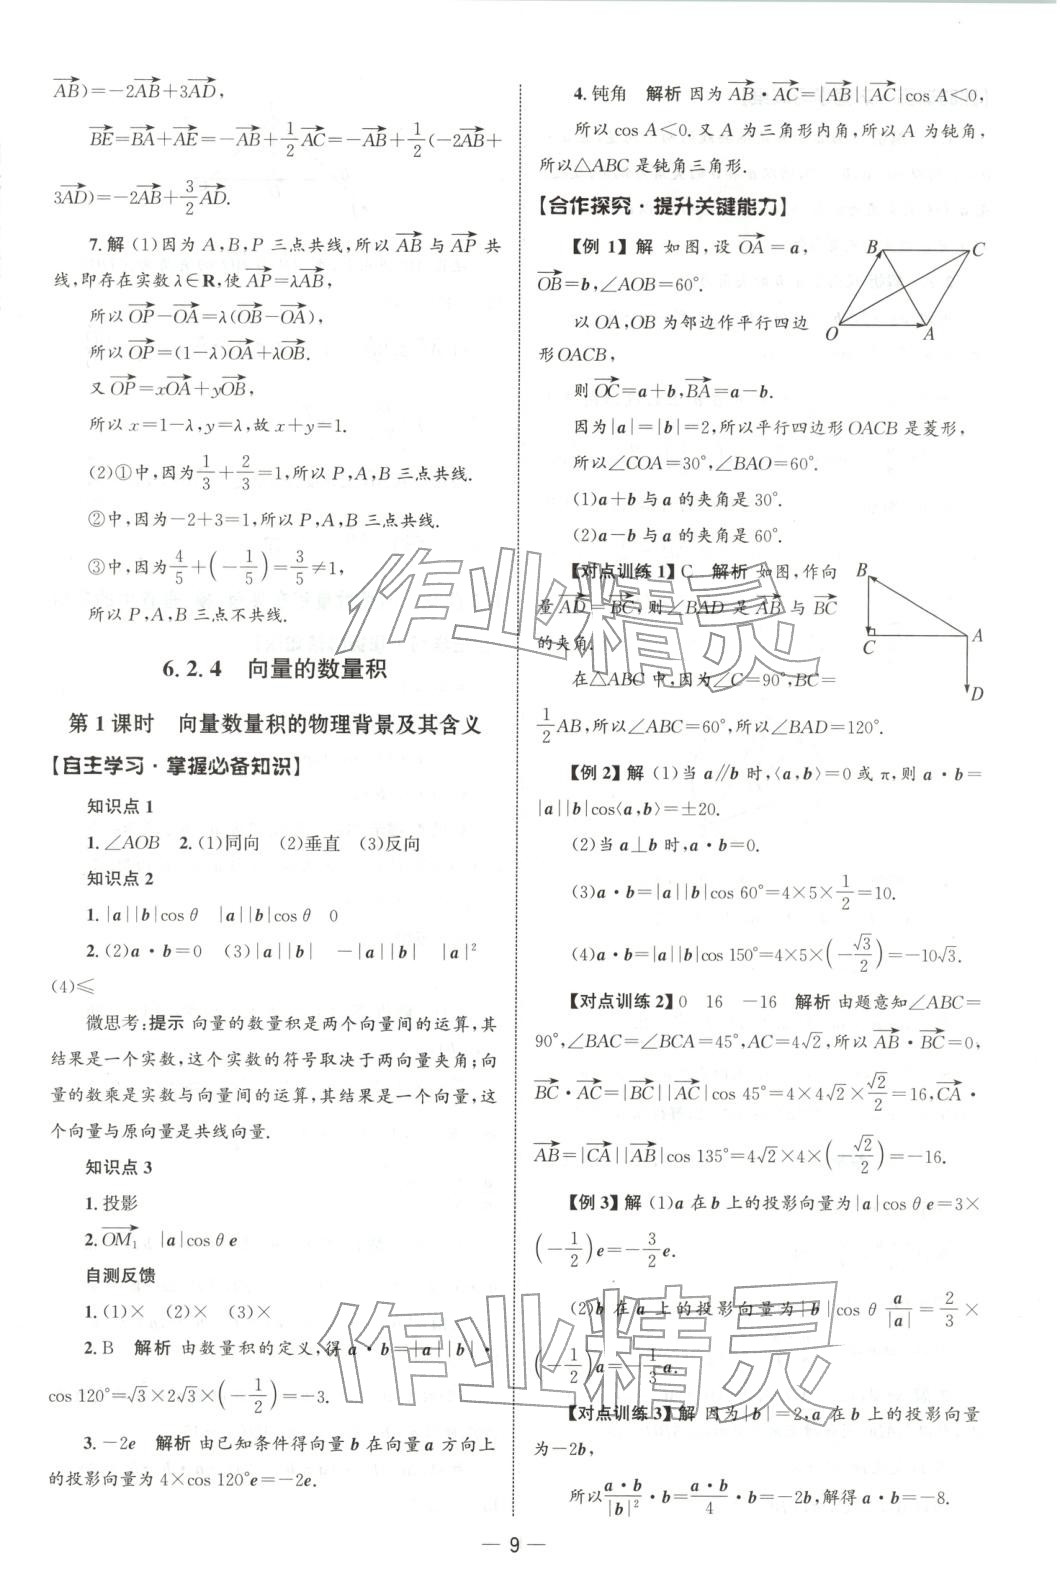 $\overrightarrow{AB}$)=−2$\overrightarrow{AB}$+3$\overrightarrow{AD}$,
$\overrightarrow{BE}$=$\overrightarrow{BA}$+$\overrightarrow{AE}$=−$\overrightarrow{AB}$+$\frac{1}{2}$$\overrightarrow{AC}$=−$\overrightarrow{AB}$+$\frac{1}{2}$(−2$\overrightarrow{AB}$+
3$\overrightarrow{AD}$)=−2$\overrightarrow{AB}$+$\frac{3}{2}$$\overrightarrow{AD}$.
7.解 (1)因为 A,B,P 三点共线,所以 $\overrightarrow{AB}$ 与 $\overrightarrow{AP}$ 共
线,即存在实数 λ∈R,使 $\overrightarrow{AP}$=λ$\overrightarrow{AB}$,
所以 $\overrightarrow{OP}$−$\overrightarrow{OA}$=λ($\overrightarrow{OB}$−$\overrightarrow{OA}$),
所以 $\overrightarrow{OP}$=(1−λ)$\overrightarrow{OA}$+λ$\overrightarrow{OB}$.
又 $\overrightarrow{OP}$=x$\overrightarrow{OA}$+y$\overrightarrow{OB}$,
所以 x=1−λ,y=λ,故 x+y=1.
(2)①中,因为 $\frac{1}{3}$+$\frac{2}{3}$=1,所以 P,A,B 三点共线.
②中,因为−2+3=1,所以 P,A,B 三点共线.
③中,因为 $\frac{4}{5}$+(−$\frac{1}{5}$)=$\frac{3}{5}$≠1,
所以 P,A,B 三点不共线.
6.2.4 向量的数量积
第 1 课时 向量数量积的物理背景及其含义
【自主学习·掌握必备知识】
知识点 1
1.∠AOB 2.(1)同向 (2)垂直 (3)反向
知识点 2
1.|a||b|cos θ |a||b|cos θ 0
2.(2)a·b=0 (3)|a||b| −|a||b| |a|²
(4)≤
微思考:提示 向量的数量积是两个向量间的运算,其
结果是一个实数,这个实数的符号取决于两向量夹角;向
量的数乘是实数与向量间的运算,其结果是一个向量,这
个向量与原向量是共线向量.
知识点 3
1.投影
2.$\overrightarrow{OM_1}$ |a|cos θ e
自测反馈
1.(1)× (2)× (3)×
2.B 解析 由数量积的定义,得 a·b=|a||b|·
cos 120°=$\sqrt{3}$×2$\sqrt{3}$×(−$\frac{1}{2}$)=−3.
3.−2e 解析 由已知条件得向量 b 在向量 a 方向上
的投影向量为 4×cos 120°e=−2e.
4.钝角 解析 因为 $\overrightarrow{AB}$·$\overrightarrow{AC}$=|$\overrightarrow{AB}$||$\overrightarrow{AC}$|cos A<0,
所以 cos A<0.又 A 为三角形内角,所以 A 为钝角,
所以△ABC 是钝角三角形.
【合作探究·提升关键能力】
【例 1】解 如图,设 $\overrightarrow{OA}$=a,
$\overrightarrow{OB}$=b,∠AOB=60°.
以 OA,OB 为邻边作平行四边
形 OACB,
B C
O A
则 $\overrightarrow{OC}$=a+b,$\overrightarrow{BA}$=a−b.
因为|a|=|b|=2,所以平行四边形 OACB 是菱形,
所以∠COA=30°,∠BAO=60°.
(1)a+b 与 a 的夹角是 30°.
(2)a−b 与 a 的夹角是 60°.
【对点训练 1】C 解析 如图,作向
量 $\overrightarrow{AD}$=$\overrightarrow{BC}$,则∠BAD 是 $\overrightarrow{AB}$ 与 $\overrightarrow{BC}$
的夹角.
B
C A
D
在△ABC 中,因为∠C=90°,BC=
$\frac{1}{2}$AB,所以∠ABC=60°,所以∠BAD=120°.
【例 2】解 (1)当 a∥b 时,⟨a,b⟩=0 或 π,则 a·b=
|a||b|cos⟨a,b⟩=±20.
(2)当 a⊥b 时,a·b=0.
(3)a·b=|a||b|cos 60°=4×5×$\frac{1}{2}$=10.
(4)a·b=|a||b|cos 150°=4×5×(−$\frac{\sqrt{3}}{2}$)=−10$\sqrt{3}$.
【对点训练 2】0 16 −16 解析 由题意知∠ABC=
90°,∠BAC=∠BCA=45°,AC=4$\sqrt{2}$,所以 $\overrightarrow{AB}$·$\overrightarrow{BC}$=0,
$\overrightarrow{BC}$·$\overrightarrow{AC}$=|$\overrightarrow{BC}$||$\overrightarrow{AC}$|cos 45°=4×4$\sqrt{2}$×$\frac{\sqrt{2}}{2}$=16,$\overrightarrow{CA}$·
$\overrightarrow{AB}$=|$\overrightarrow{CA}$||$\overrightarrow{AB}$|cos 135°=4$\sqrt{2}$×4×(−$\frac{\sqrt{2}}{2}$)=−16.
【例 3】解 (1)a 在 b 上的投影向量为|a|cos θ e=3×
(−$\frac{1}{2}$)e=−$\frac{3}{2}$e.
(2)b 在 a 上的投影向量为|b|cos θ $\frac{a}{|a|}$=$\frac{2}{3}$×
(−$\frac{1}{2}$)a=−$\frac{1}{3}$a.
【对点训练 3】解 因为|b|=2,a 在 b 上的投影向量
为−2b,
所以$\frac{a·b}{|b|^2}$·b=$\frac{a·b}{4}$·b=−2b,解得 a·b=−8.
— 9 —
作业精灵
作业精灵